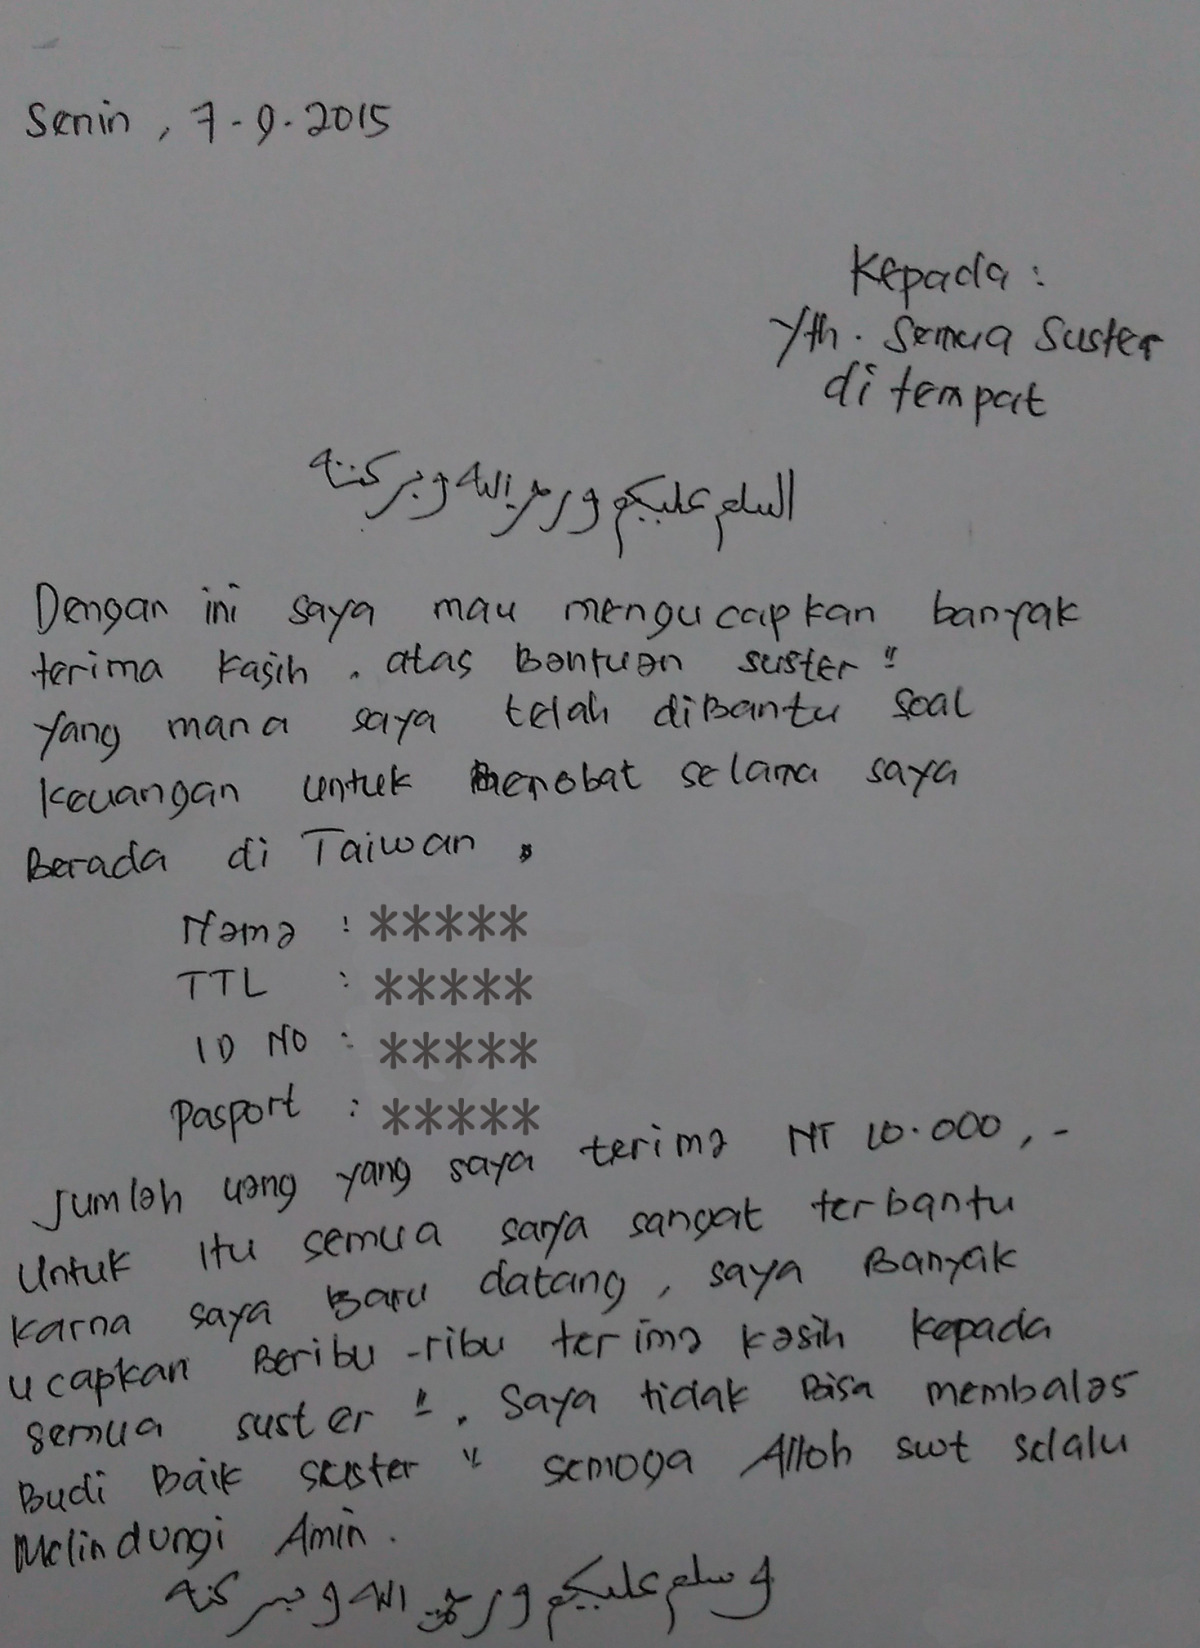 Senin, 7-9-2015
Kepada :
Yth. Semua Suster
di tempat
السلم عليكم و رحمة الله و بركته
Dengan ini saya mau mengucapkan banyak
terima kasih. atas Bantuan suster "
yang mana saya telah diBantu soal
keuangan untuk berobat selama saya
Berada di Taiwan.
Nama : *****
TTL : *****
ID NO : *****
Pasport : *****
Jumlah uang yang saya terima NT 10.000,-
Untuk itu semua saya sangat terbantu
Karna saya Baru datang, saya Banyak
ucapkan Beribu-ribu terima kasih kepada
semua suster ". Saya tidak Bisa membalas
Budi Baik suster " semoga Alloh swt selalu
Melindungi Amin.
و سلم عليكم و رحمة الله و بركته